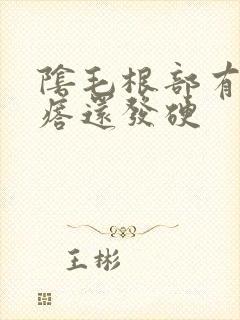 陰毛根部有
痞還發硬
王彬